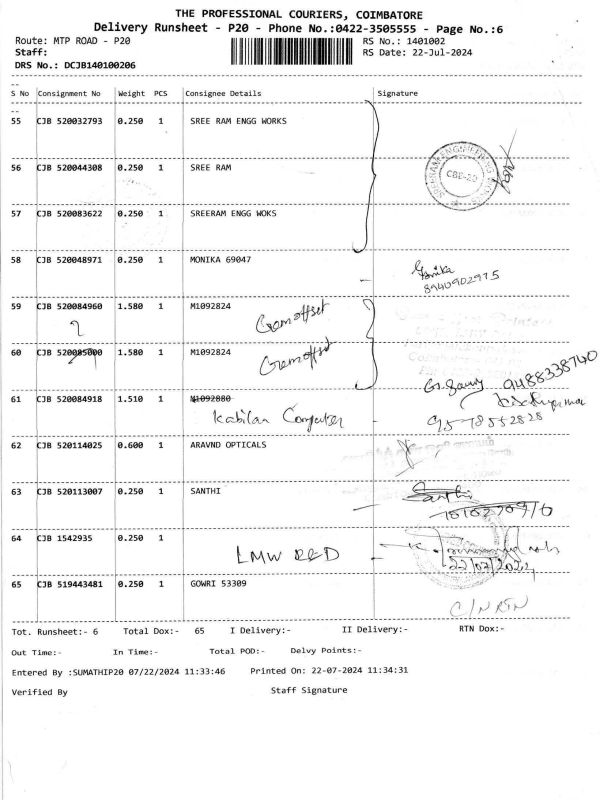 THE PROFESSIONAL COURIERS, COIMBATORE
Delivery Runsheet - P20 - Phone No.:0422-3505555 - Page No.:6
Route: MTP ROAD - P20 RS No.: 1401002
Staff: RS Date: 22-Jul-2024
DRS No.: DCJB140100206
--
S No Consignment No Weight PCS Consignee Details Signature
--
55 CJB 520032793 0.250 1 SREE RAM ENGG WORKS
CBE-29
56 CJB 520044308 0.250 1 SREE RAM
57 CJB 520083622 0.250 1 SREERAM ENGG WOKS
58 CJB 520048971 0.250 1 MONIKA 69047
8940902975
59 CJB 520084960 1.580 1 M1092824
Gem offset
60 CJB 520085000 1.580 1 M1092824
Gem offset
9488338740
61 CJB 520084918 1.510 1 M1092880
Kabilan Computer 9578552828
62 CJB 520114025 0.600 1 ARAVND OPTICALS
63 CJB 520113007 0.250 1 SANTHI Santhi
64 CJB 1542935 0.250 1
LMW R&D
22/07/2024
65 CJB 519443481 0.250 1 GOWRI 53309
C/N RTN
Tot. Runsheet:- 6 Total Dox:- 65 I Delivery:- II Delivery:- RTN Dox:-
Out Time:- In Time:- Total POD:- Delvy Points:-
Entered By :SUMATHIP20 07/22/2024 11:33:46 Printed On: 22-07-2024 11:34:31
Verified By Staff Signature